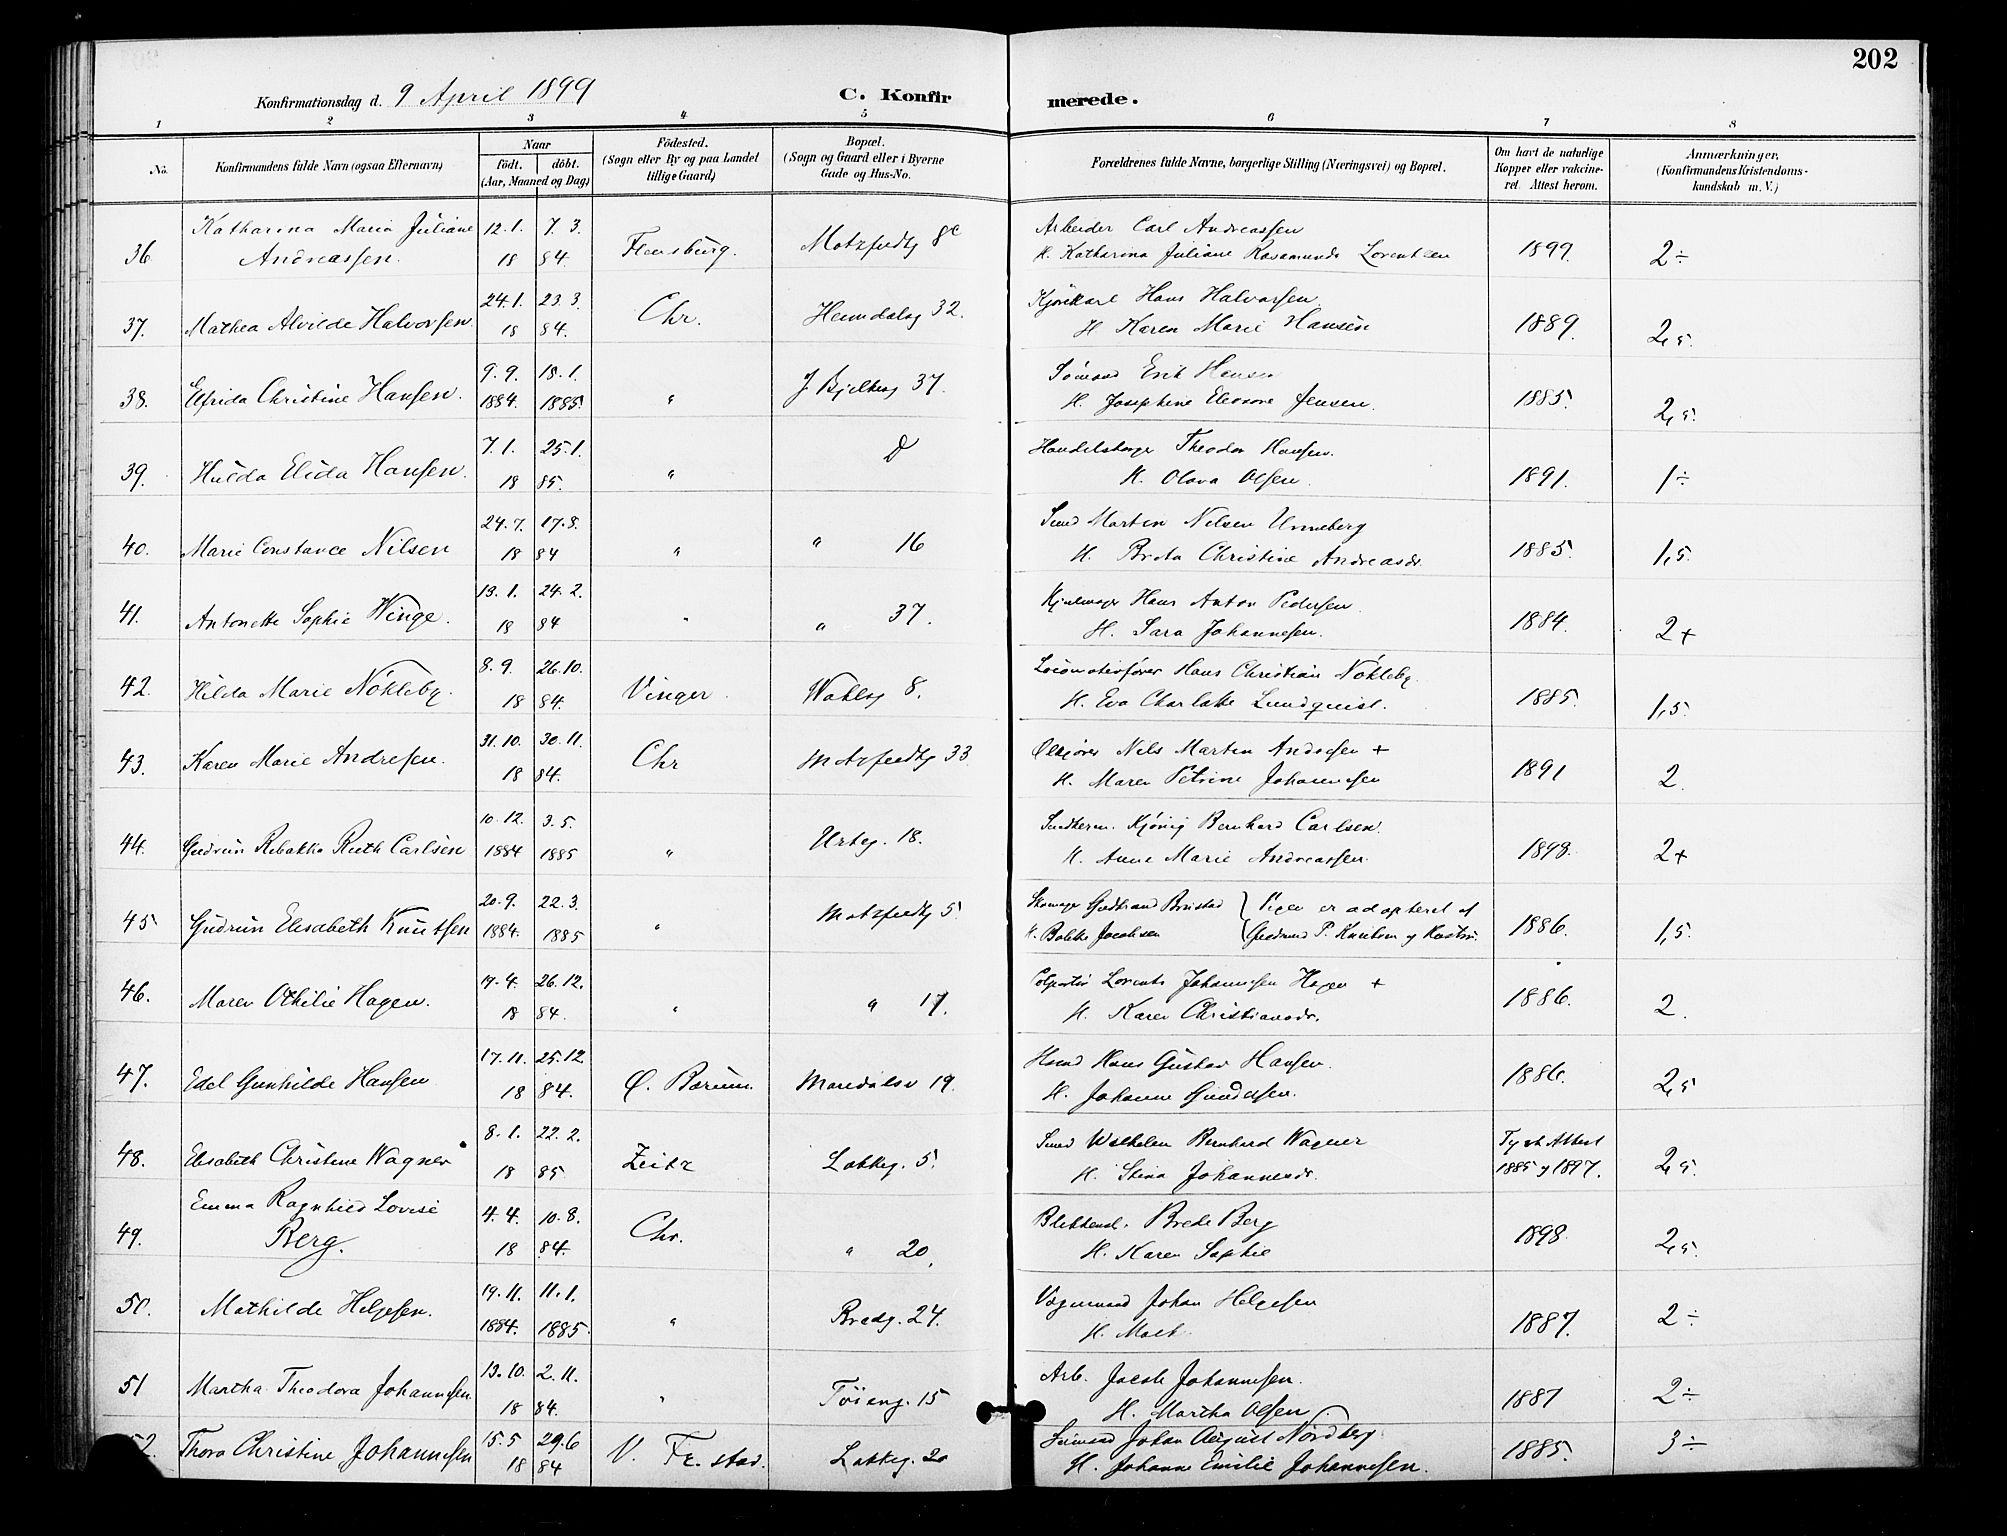 202
Konfirmationsdag d. 9 April 1899
C. Konfirmerede.
1 2 3 4 5 6 7 8
No.
Konfirmandens fulde Navn (ogsaa Efternavn)
Naar
födt. döbt.
(Aar, Maaned og Dag)
Födested.
(Sogn eller By og paa Landet
tillige Gaard)
Bopæl.
(Sogn og Gaard eller i Byerne
Gade og Hus-No.
Forældrenes fulde Navne, borgerlige Stilling (Næringsvei) og Bopæl.
Om havt de naturlige
Kopper eller vakcine-
ret. Attest herom.
Anmærkninger,
(Konfirmandens Kristendoms-
kundskab m. V.)
36 Katharina Maria Juliane 12.1. 7.3. Flensburg. Motzfedtg 8c Arbeider Carl Andreassen 1899. 2÷
Andreassen. 18 84. H. Katharina Juliane Rosamunde Lorentzen
37. Mathea Alvilde Halvorsen. 24.1. 23.3. Chr. Heimdalsg 32. Kjørekarl Hans Halvorsen 1889. 2,5.
18 84. H. Karen Marie Hansen
38. Elfrida Christine Hansen. 9.9. 18.1. " J Bjelkesg 37. Sömand Erik Hansen 1885. 2,5.
1884. 1885. H. Josephine Eleonore Jensen.
39. Hulda Elida Hansen. 7.1. 25.1. " Theodor Hansen. 1891. 1÷
18 85. H. Olava Olsen.
40. Marie Constance Nilsen 24.7. 17.8. " " 16 Smed Martin Nilsen Unneberg 1885. 1,5.
18 84 H. Berta Christine Andreasdr.
41. Antonette Sophie Winge. 13.1. 24.2. " " 37. Hjulmager Hans Anton Pedersen. 1884. 2+
18 84 H. Sara Johannesen.
42. Hilda Marie Nökleby. 8.9. 26.10. Vinger. Wahlsg 8. Locomotivförer Hans Christian Nökleby. 1885. 1,5.
18 84. H. Eva Charlotte Lundquist.
43. Karen Marie Andresen. 31.10. 30.11. Chr Motzfeldtg 33 Ølkjører Nils Martin Andresen + 1891 2
18 84. H. Maren Petrine Johannesen
44. Gudrun Rebekka Ruth Carlsen 10.12. 3.5. " Urteg. 18. Bernhard Carlsen. 1898. 2+
1884 1885 H. Anne Marie Andreassen.
45 Gudrun Elisabeth Knutsen 20.9. 22.3. " Motzfeldtg 5. Skomager Gudbrand Brustad } Pigen er adopteret af 1886. 1,5.
1884. 1885 H. Bolette Jacobsen { Gudmund P. Knutsen og Hustru.
46. Maren Othilie Hagen. 19.4. 26.12. " " 17. Colportör Lorents Johannesen Hagen + 1886. 2.
18 84. H. Karen Christiansdr.
47. Edel Gunhilde Hansen 17.11. 25.12. Ø. Bærum. Maridalsv 19. Hans Gustav Hansen. 1886. 2,5
18 84. H. Johanne Gundersen.
48. Elisabeth Christine Wagner 8.1. 22.2. Zeitz Lakkeg. 5. Smed Wilhelm Bernhard Wagner Tysk Attest 2,5.
18 85. H. Stina Johannesdr. 1885 og 1897.
49. Emma Ragnhild Lovise 4.4. 10.8. Chr. " 20. Brede Berg 1898. 2,5.
Berg. 18 84. H. Karen Sophie
50. Mathilde Helgesen. 19.11. 11.1. " Bredg. 24. Vognmand Johan Helgesen 1887. 2÷
1884. 1885. H. Math.
51 Martha Theodora Johannesen 13.10. 2.11. " Töieng. 15 Arb. Jacob Johannesen. 1887 2÷
18 84. H. Martha Olsen.
52. Thora Christine Johannesen 15.5 29.6 V. Fr. stad. Lakkeg. 20 Sömand Johan August Nordberg 1885. 3÷
18 84 H. Johanne Emilie Johannesen.